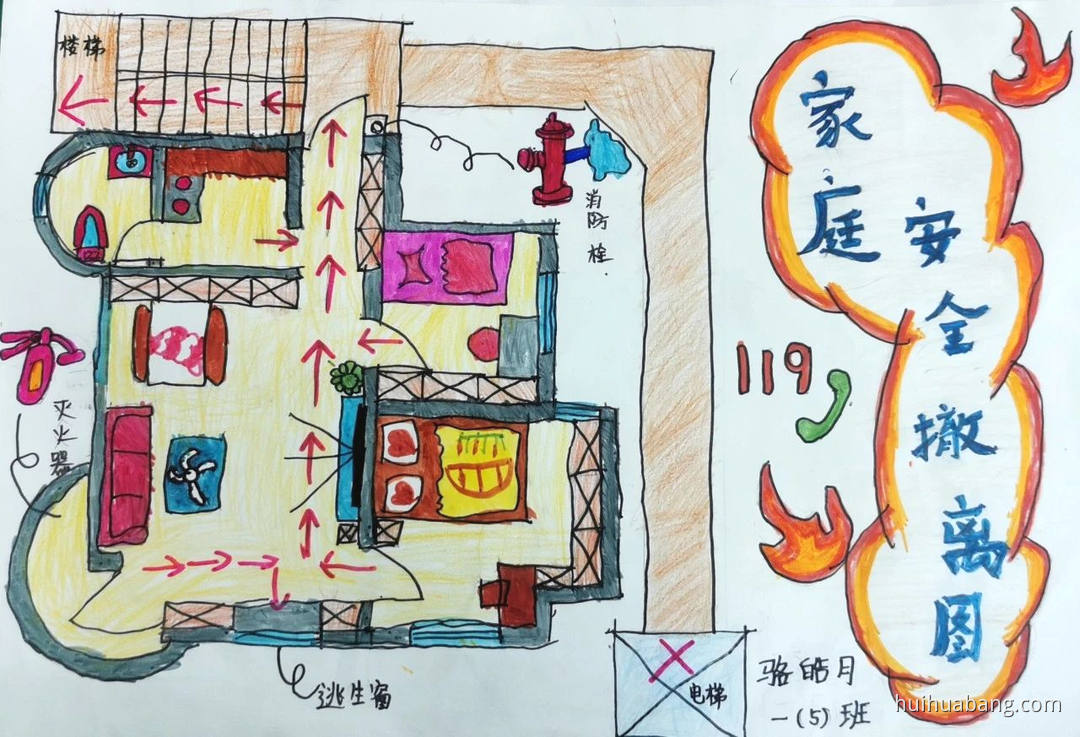 楼梯
家庭
安全撤离图
消防栓.
119
灭火器
逃生窗
电梯
骆皓月
一(5)班
huihuabang.com